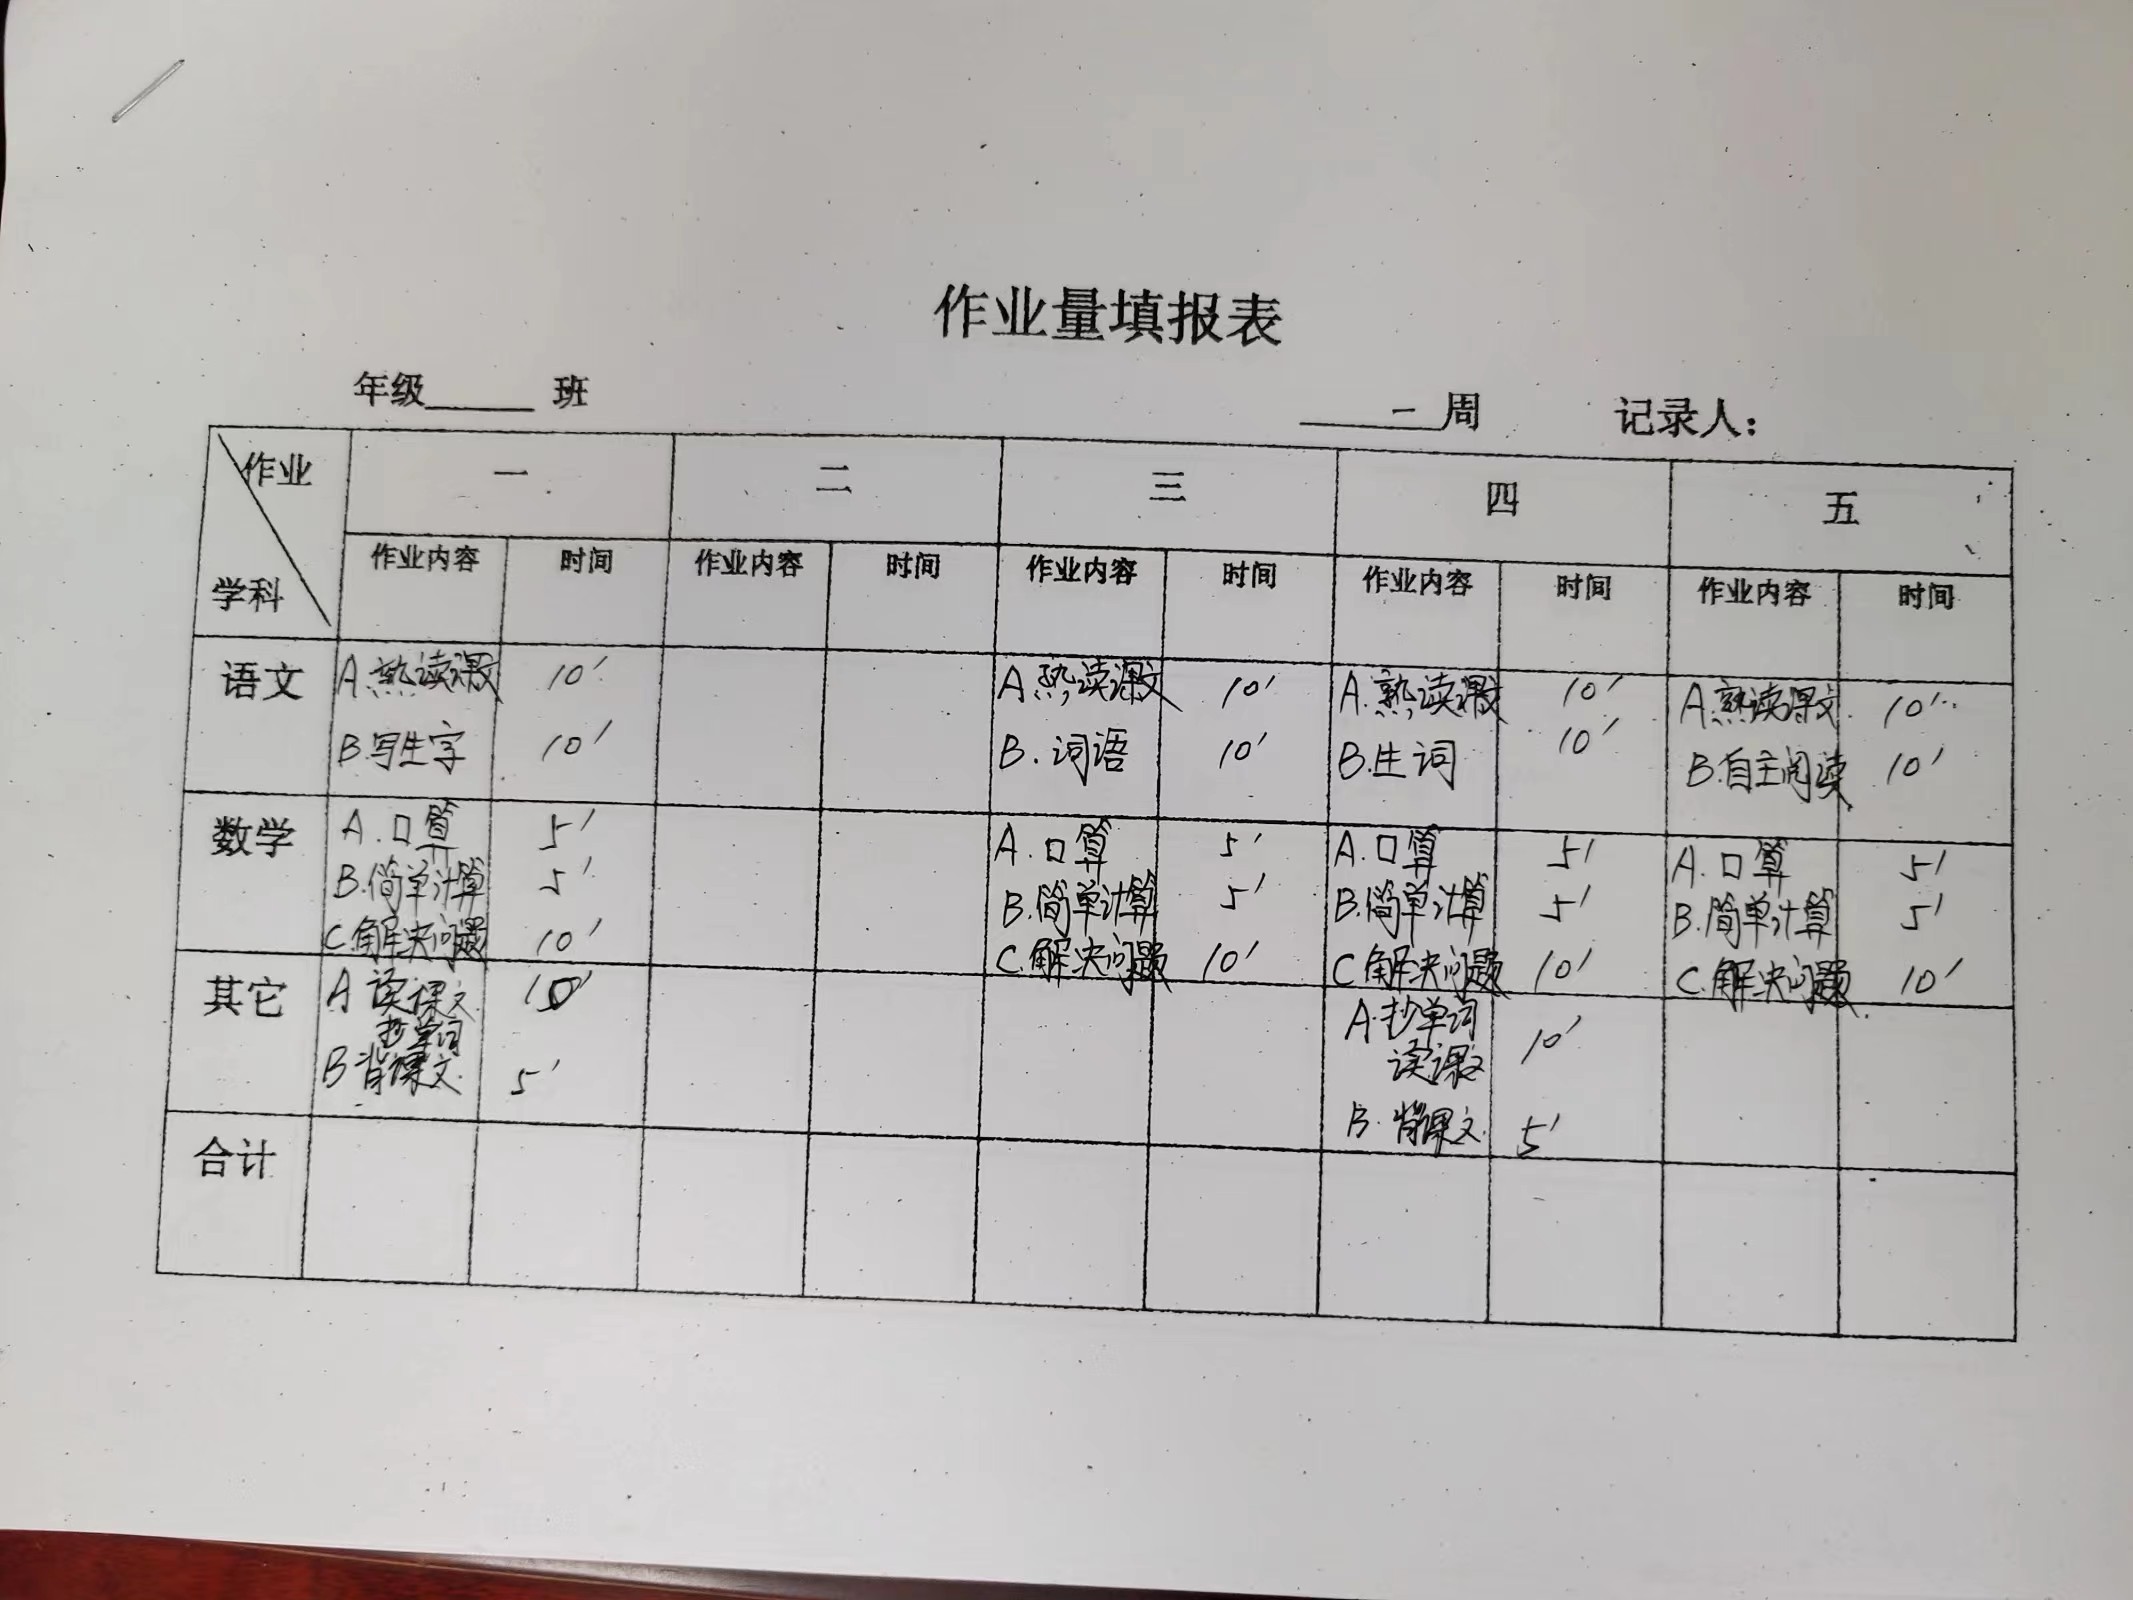 作业量填报表
年级______ 班 ______一周 记录人：
作业 一 二 三 四 五
学科 作业内容 时间 作业内容 时间 作业内容 时间 作业内容 时间 作业内容 时间
语文 A.熟读课文 10′ A.熟读课文 10′ A.熟读课文 10′ A.熟读课文 10′
B.写生字 10′ B.词语 10′ B.生词 10′ B.自主阅读 10′
数学 A.口算 5′ A.口算 5′ A.口算 5′ A.口算 5′
B.简单计算 5′ B.简单计算 5′ B.简单计算 5′ B.简单计算 5′
C.解决问题 10′ C.解决问题 10′ C.解决问题 10′ C.解决问题 10′
其它 A 读课文 10′ A.抄单词 10′
抄单词 读课文
B 背课文 5′ B.背课文 5′
合计